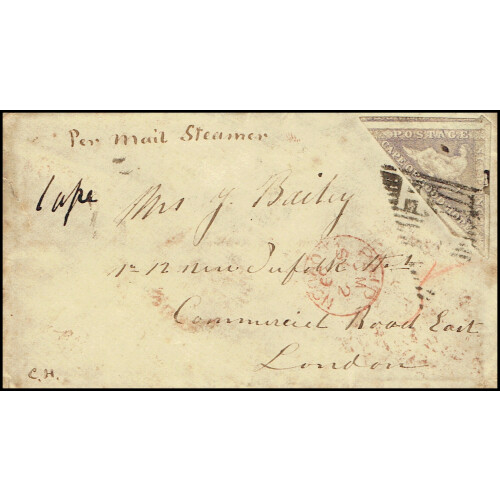 Per Mail Steamer
POSTAGE
Cape
Mrs J. Bailey
No 12 New
Commercial Road East
London
C.H.